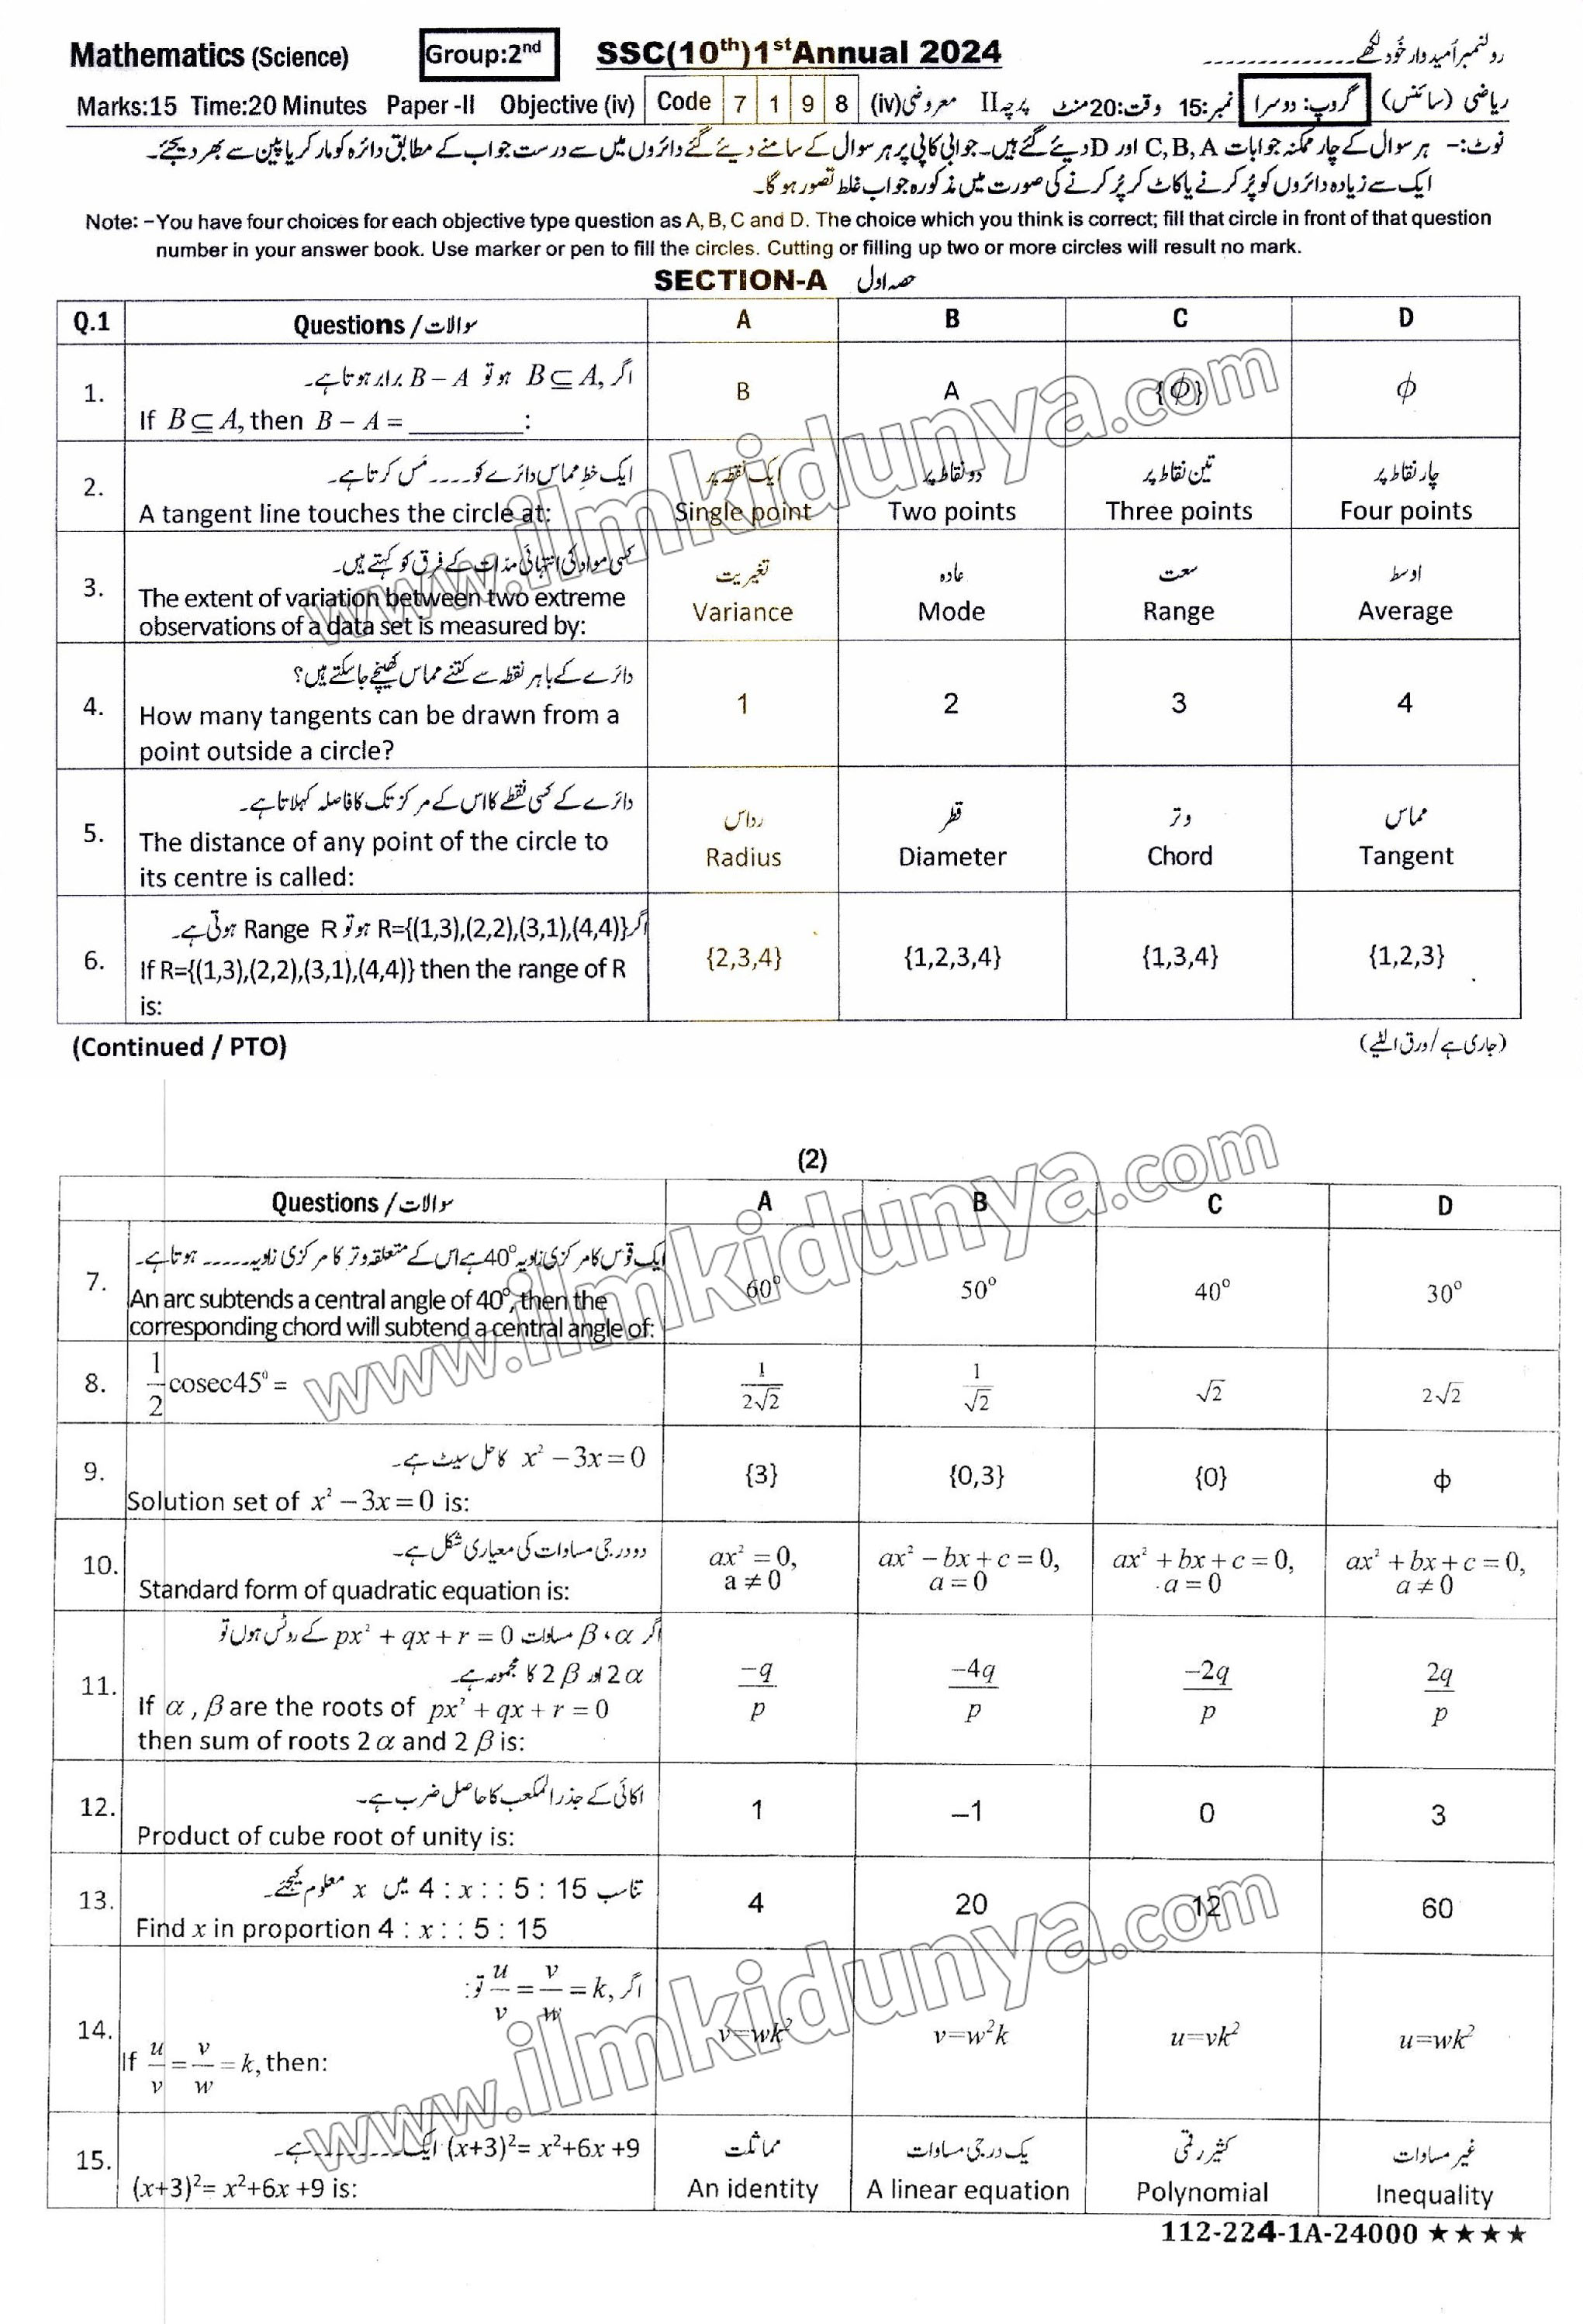 Mathematics (Science) Group:2nd SSC(10th)1st Annual 2024 رولنمبر اُمیدوار خُود لکھے
Marks:15 Time:20 Minutes Paper -II Objective (iv) Code 7 1 9 8 معروضی(iv) پرچہ II وقت:20منٹ نمبر:15 گروپ: دوسرا ریاضی (سائنس)
نوٹ:- ہر سوال کے چار ممکنہ جوابات C, B, A اور D دیئے گئے ہیں۔ جوابی کاپی پر ہر سوال کے سامنے دیئے گئے دائروں میں سے درست جواب کے مطابق دائرہ کو مارکر یا پین سے بھر دیجئے۔
ایک سے زیادہ دائروں کو پُر کرنے یا کاٹ کر پُر کرنے کی صورت میں مذکورہ جواب غلط تصور ہو گا۔
Note: –You have four choices for each objective type question as A, B, C and D. The choice which you think is correct; fill that circle in front of that question
number in your answer book. Use marker or pen to fill the circles. Cutting or filling up two or more circles will result no mark.
SECTION-A حصہ اول
Q.1 Questions / سوالات A B C D
1. اگر B ⊆ A, ہو تو B – A برابر ہوتا ہے۔
If B ⊆ A, then B – A = ________: B A {ϕ} ϕ
2. ایک خطِ مماس دائرے کو ---- مَس کرتا ہے۔ ایک نقطہ پر دو نقاط پر تین نقاط پر چار نقاط پر
A tangent line touches the circle at: Single point Two points Three points Four points
3. کسی مواد کی انتہائی مدّات کے فرق کو کہتے ہیں۔ تغیریت عادہ سعت اوسط
The extent of variation between two extreme
observations of a data set is measured by: Variance Mode Range Average
4. دائرے کے باہر نقطہ سے کتنے مماس کھینچے جا سکتے ہیں؟
How many tangents can be drawn from a
point outside a circle? 1 2 3 4
5. دائرے کے کسی نقطے کا اس کے مرکز تک کا فاصلہ کہلاتا ہے۔ رداس قطر وتر مماس
The distance of any point of the circle to
its centre is called: Radius Diameter Chord Tangent
6. اگر R={(1,3),(2,2),(3,1),(4,4)} ہو تو R Range ہوتی ہے۔
If R={(1,3),(2,2),(3,1),(4,4)} then the range of R
is: {2,3,4} {1,2,3,4} {1,3,4} {1,2,3}
(Continued / PTO) (جاری ہے/ورق الٹیے)
(2)
Questions / سوالات A B C D
7. ایک قوس کا مرکزی زاویہ 40° ہے اس کے متعلقہ وتر کا مرکزی زاویہ ----- ہوتا ہے۔
An arc subtends a central angle of 40°, then the
corresponding chord will subtend a central angle of: 60° 50° 40° 30°
8. 1/2 cosec45° = 1/(2√2) 1/√2 √2 2√2
9. x² – 3x = 0 کا حل سیٹ ہے۔
Solution set of x² – 3x = 0 is: {3} {0,3} {0} ϕ
10. دو درجی مساوات کی معیاری شکل ہے۔
Standard form of quadratic equation is: ax² = 0, a ≠ 0 ax² – bx + c = 0, a = 0 ax² + bx + c = 0, a = 0 ax² + bx + c = 0, a ≠ 0
11. اگر α ، β مساوات px² + qx + r = 0 کے روٹس ہوں تو
2α اور 2β کا مجموعہ ہے۔
If α , β are the roots of px² + qx + r = 0
then sum of roots 2α and 2β is: –q/p –4q/p –2q/p 2q/p
12. اکائی کے جذر المکعب کا حاصل ضرب ہے۔
Product of cube root of unity is: 1 –1 0 3
13. تناسب 4 : x : : 5 : 15 میں x معلوم کیجئے۔
Find x in proportion 4 : x : : 5 : 15 4 20 12 60
14. اگر, u/v = v/w = k تو:
If u/v = v/w = k, then: v=wk² v=w²k u=vk² u=wk²
15. (x+3)²= x²+6x +9 ایک -------- ہے۔ مماثلت یک درجی مساوات کثیر رقمی غیر مساوات
(x+3)²= x²+6x +9 is: An identity A linear equation Polynomial Inequality
112-224-1A-24000 ★★★★
www.ilmkidunya.com
www.ilmkidunya.com
www.ilmkidunya.com